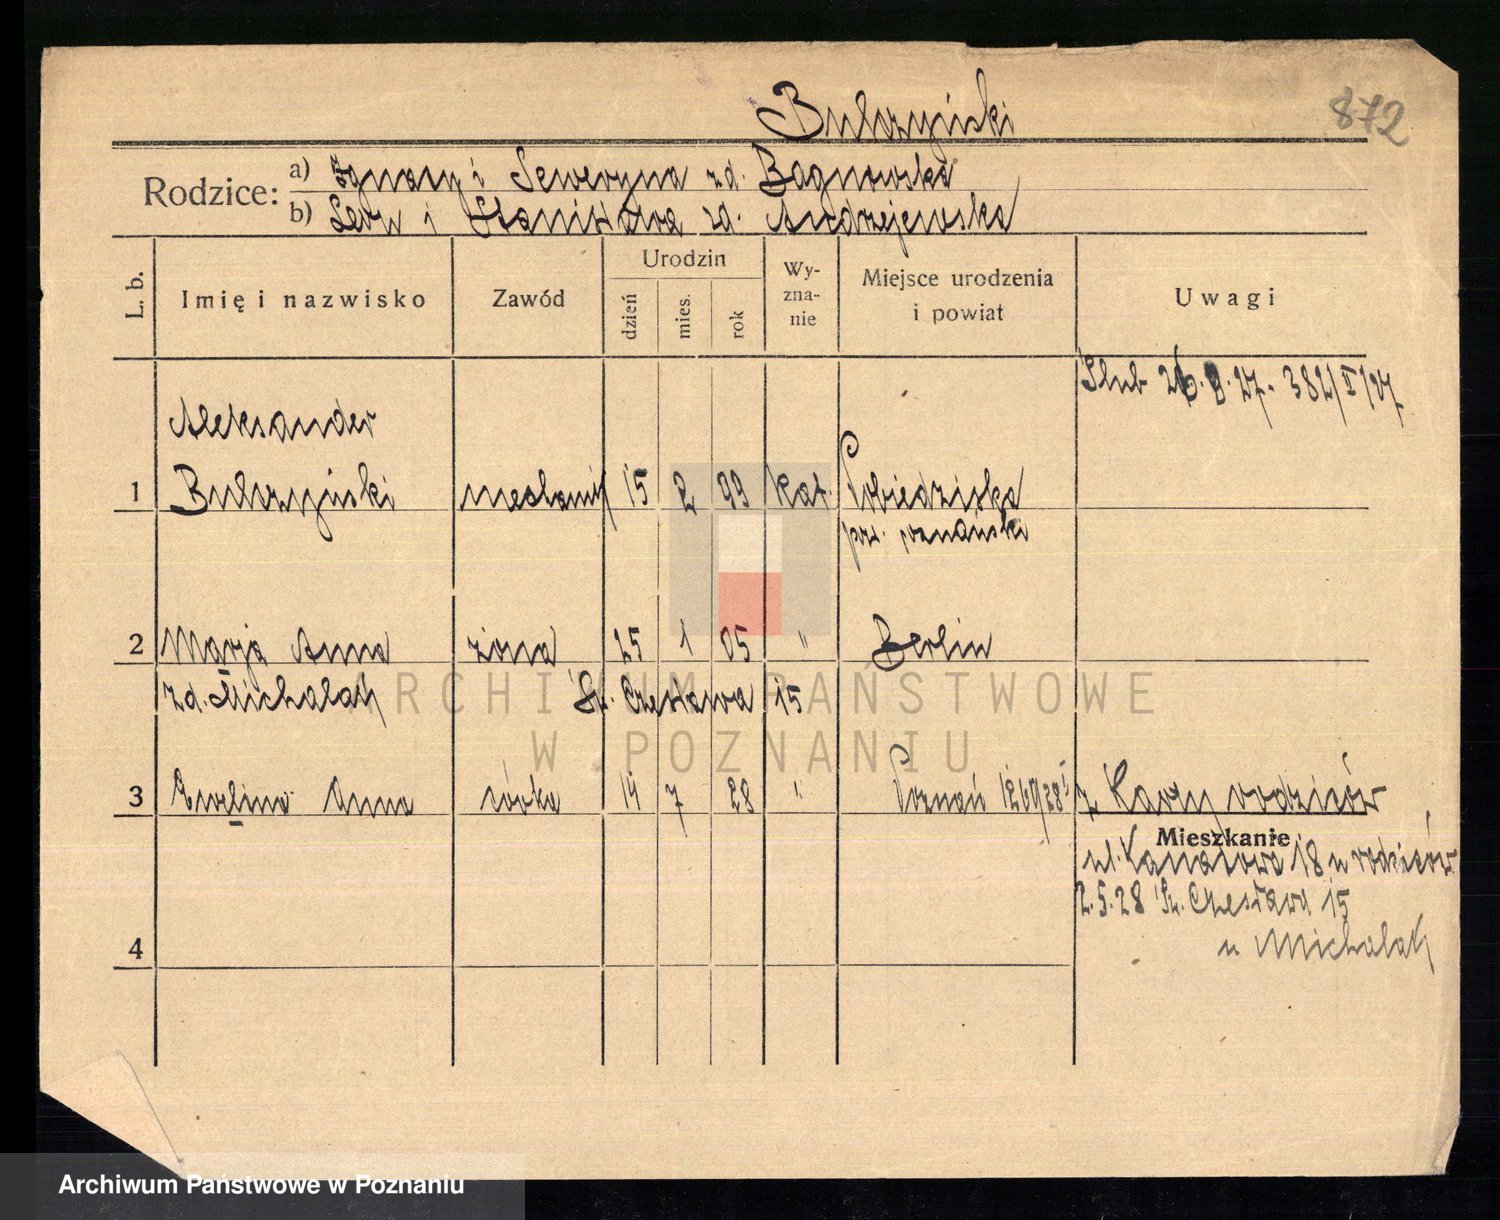 Bulczyński
872
Rodzice:
a) Ignacy i Seweryna zd. Bagnowska
b) Leon i Stanisława zd. Andrzejewska
L. b.
Imię i nazwisko
Zawód
Urodzin
dzień
mies.
rok
Wy-
zna-
nie
Miejsce urodzenia
i powiat
Uwagi
Ślub 26.8.27. 382/I/27
Aleksander
1 Bulczyński 15 2 99 kat. Pobiedziska
pow. poznański
2 Marja Anna żona 25 1 05 " Berlin
zd. Michalak Św. Czesława 15
3 Ewelina Anna córka 14 7 28 " Poznań
z Karty rodziców
Mieszkanie
ul. Kanałowa 18 u rodziców
2.5.28 Św. Czesława 15
u Michalak
4
ARCHIWUM PAŃSTWOWE
W POZNANIU
Archiwum Państwowe w Poznaniu